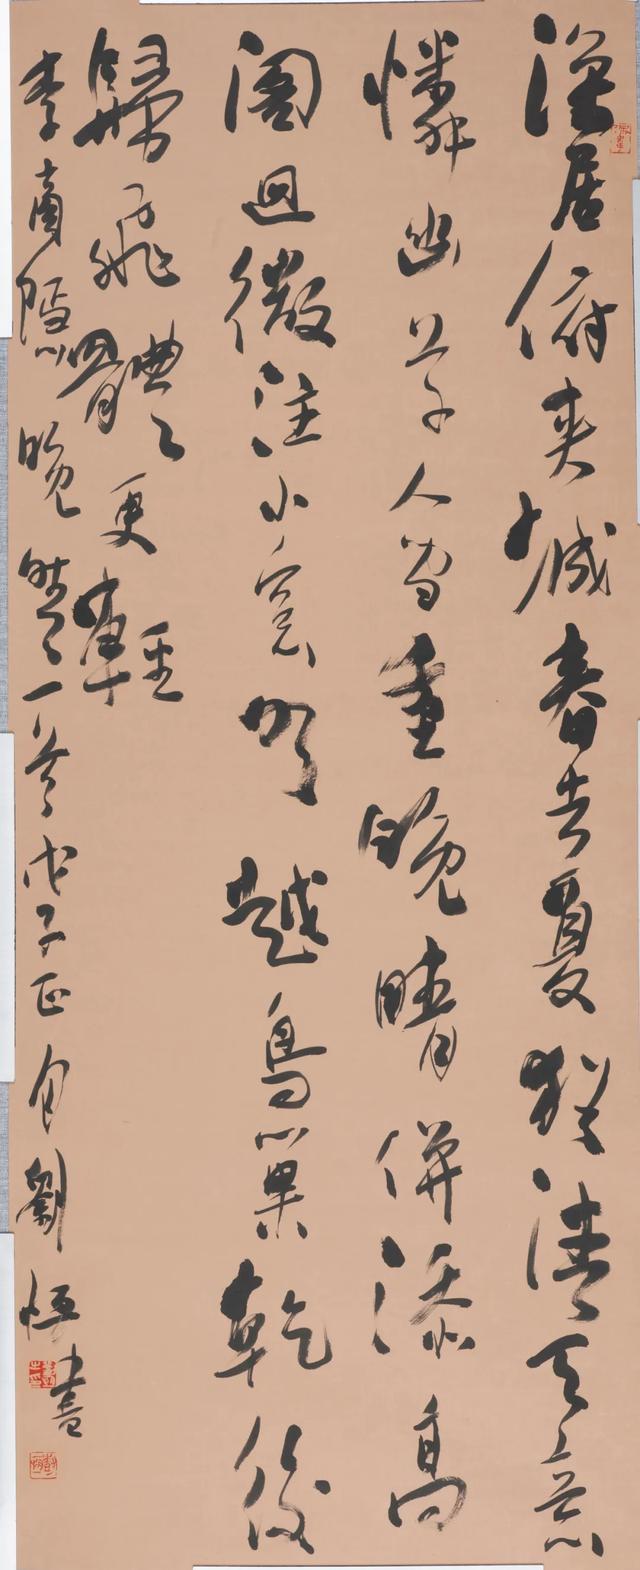 深居俯夾城春去夏猶清天意
憐幽草人間重晚晴併添高
閣迥微注小窗明越鳥巢乾後
歸飛體更輕
李商隱晚晴一首戊子正月劉恒書